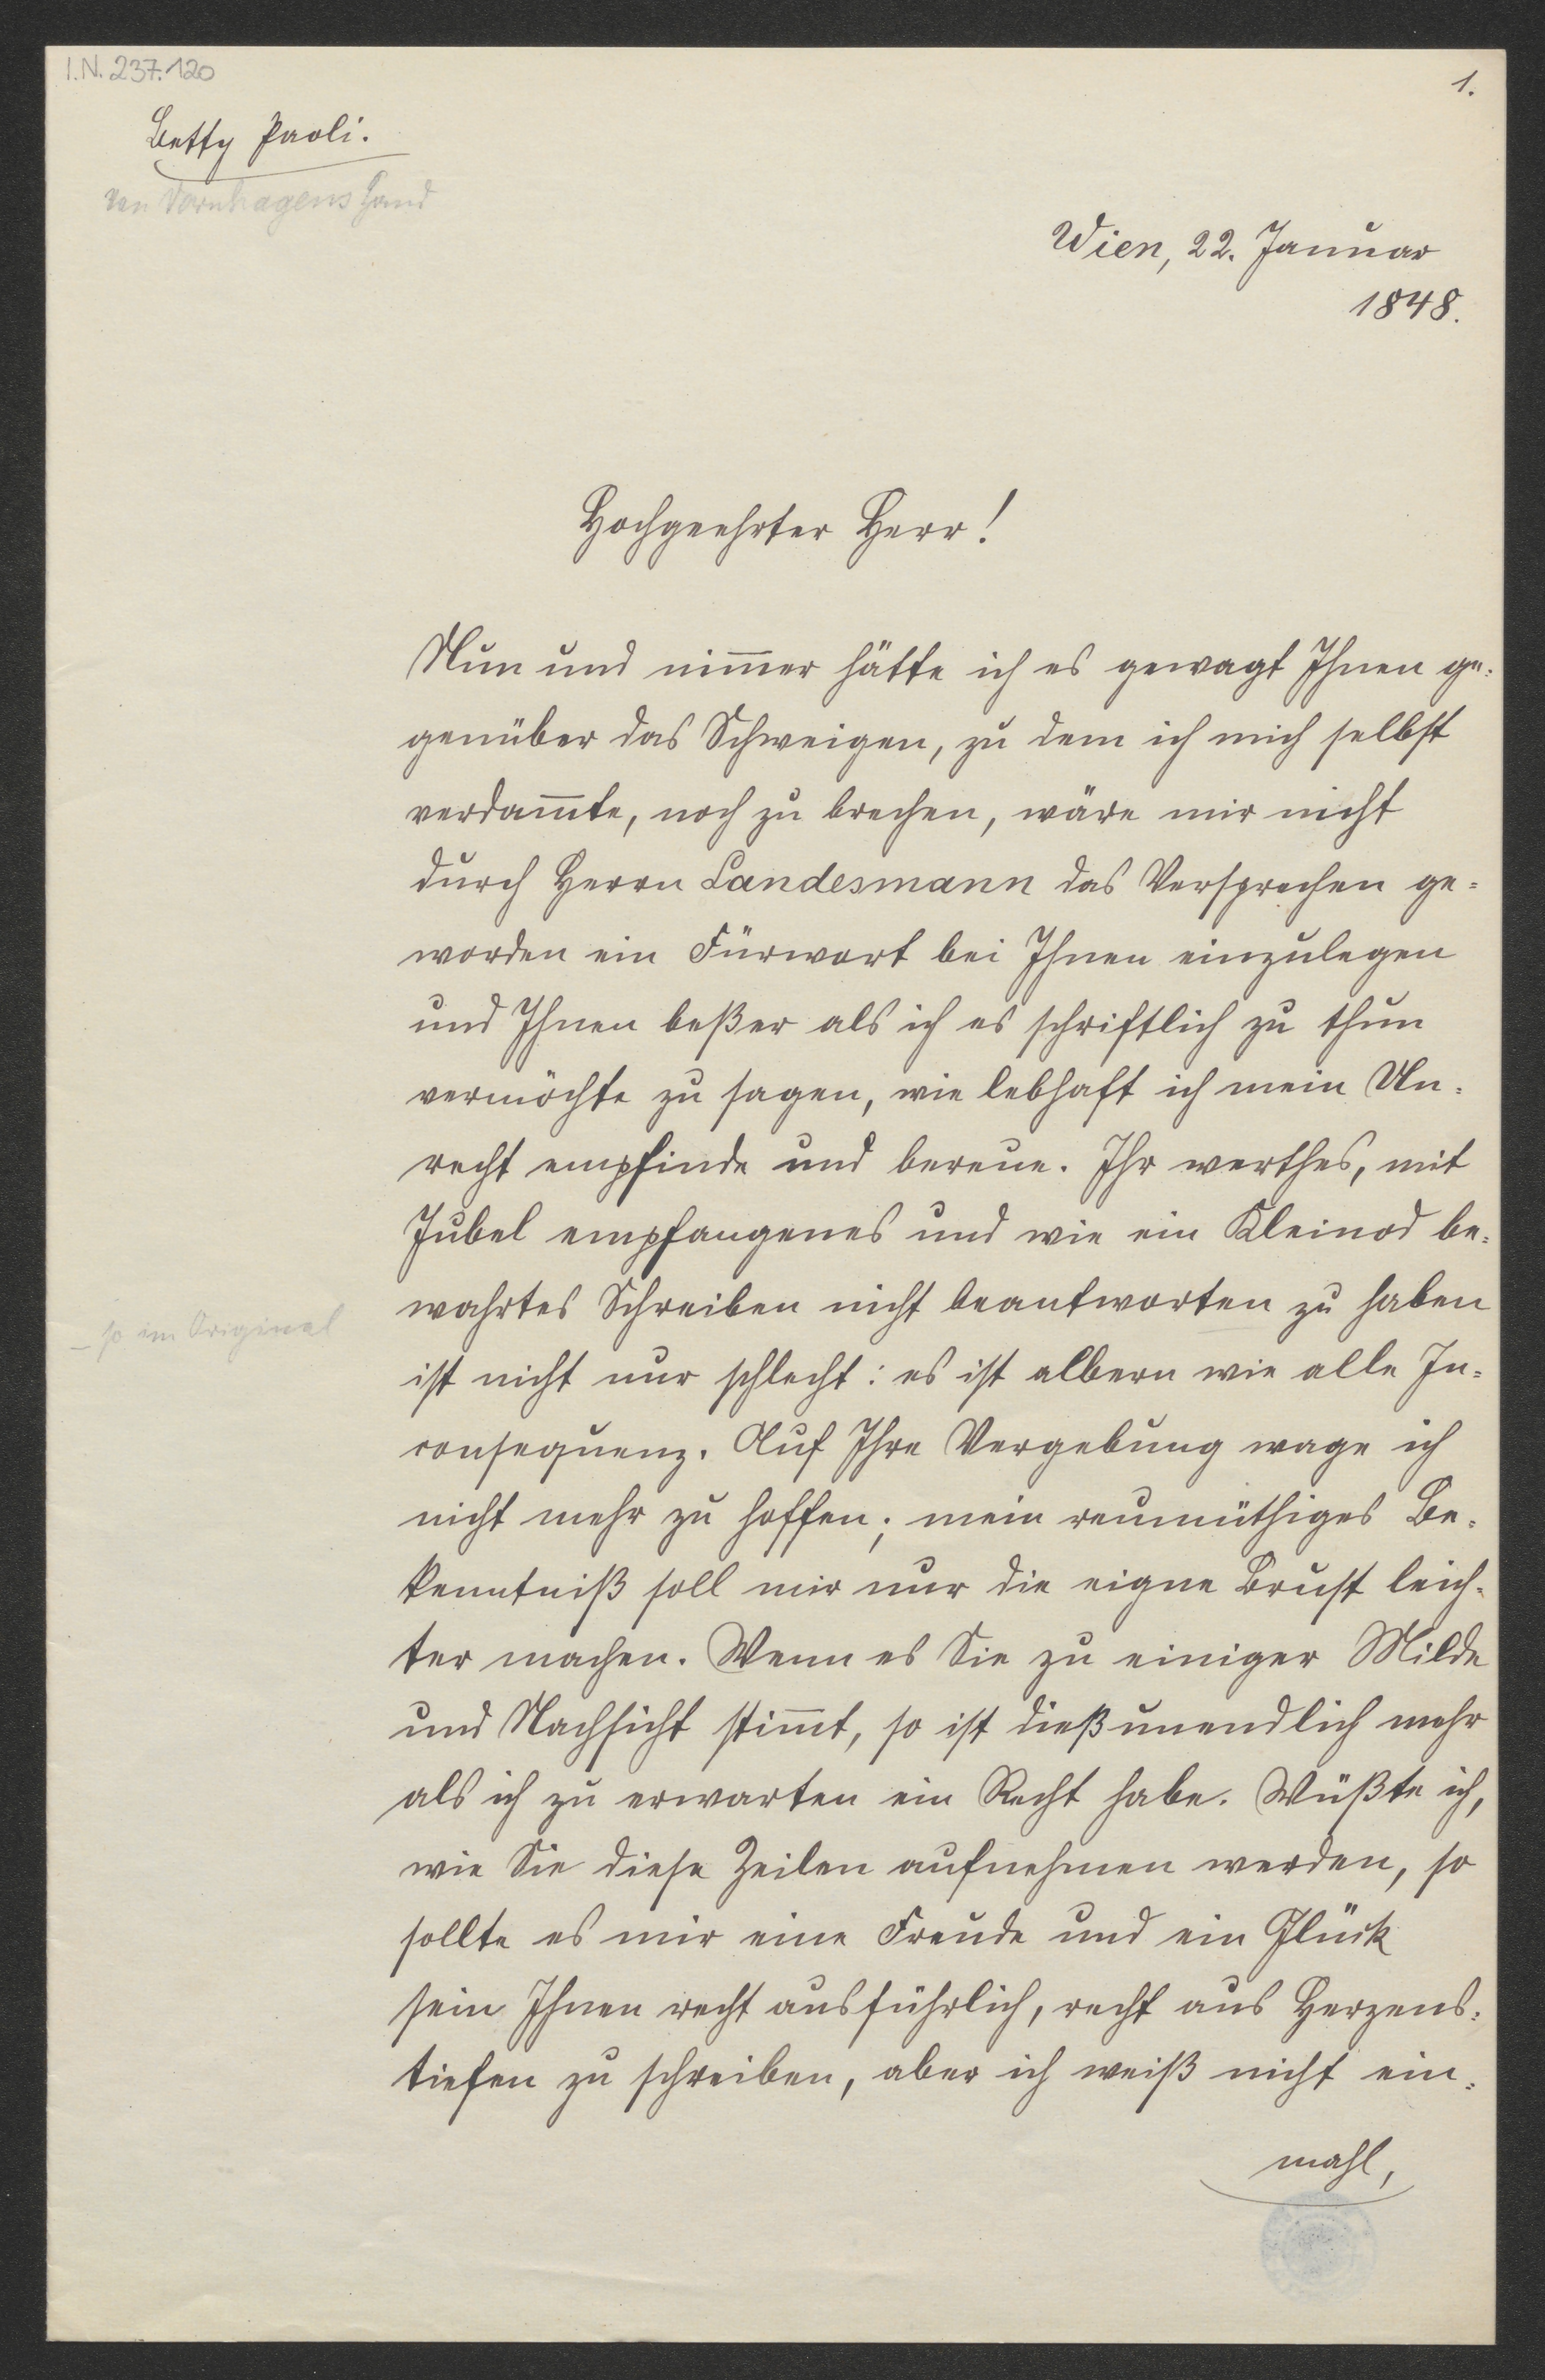 I.N. 237.120
1.
Betty Paoli.
von Varnhagens Hand
Wien, 22. Januar
1848.
Hochgeehrter Herr!
Nun und nim̅er hätte ich es gewagt Ihnen ge-
genüber das Schweigen, zu dem ich mich selbst
verdam̅te, noch zu brechen, wäre mir nicht
durch Herrn Landesmann das Versprechen ge=
worden ein Fürwort bei Ihnen einzulegen
und Ihnen beßer als ich es schriftlich zu thun
vermöchte zu sagen, wie lebhaft ich mein Un=
recht empfinde und bereue. Ihr werthes, mit
Jubel empfangenes und wie ein Kleinod be=
wahrtes Schreiben nicht beantworten zu haben
– so im Original
ist nicht nur schlecht: es ist albern wie alle In=
consequenz. Auf Ihre Vergebung wage ich
nicht mehr zu hoffen; mein reumüthiges Be=
kenntniß soll mir nur die eigne Brust leich=
ter machen. Wenn es Sie zu einiger Milde
und Nachsicht stim̅t, so ist dieß unendlich mehr
als ich zu erwarten ein Recht habe. Wüßte ich,
wie Sie diese Zeilen aufnehmen werden, so
sollte es mir eine Freude und ein Glück
sein Ihnen recht ausführlich, recht aus Herzens=
tiefen zu schreiben, aber ich weiß nicht ein=
mahl,